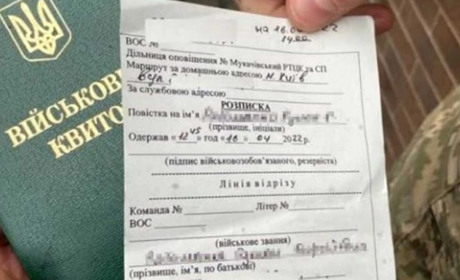 ВІЙСЬКОВ
КВИТО
на 16.0
14.00
ВОС №
Дільниця оповіщення № Мукачівський РТЦК та СП
Маршрут за домашньою адресою м. Київ
вул.
За службовою адресою
РОЗПИСКА
Повістка на ім'я
(прізвище, ініціали)
Одержав « 12 45 » год « 16 » 04 2022р.
(підпис військовозобов'язаного, резервіста)
Лінія відрізу
Команда № Літер №
ВОС
(військове звання)
(прізвище, ім'я, по батькові)